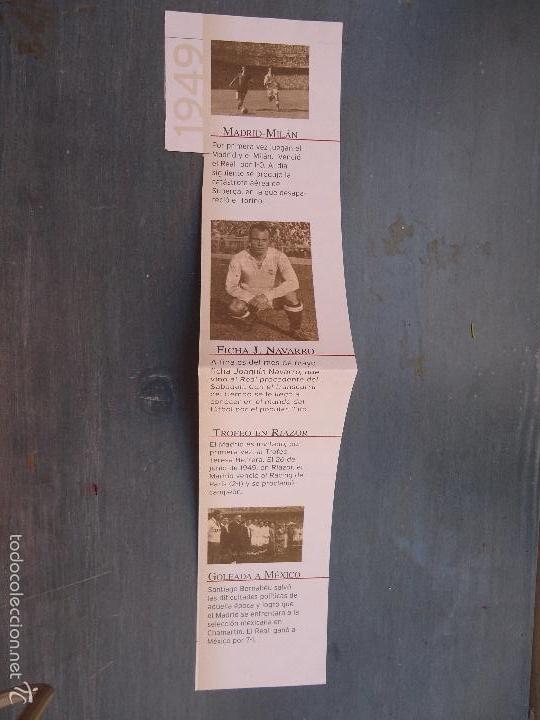 1949
MADRID-MILÁN
Por primera vez juegan el
Madrid y el Milán. Venció
el Real por 1-0. Al día
siguiente se produjo la
catástrofe aérea de
Superga, en la que desapa-
reció el Torino.
FICHA J. NAVARRO
A finales del mes de mayo
ficha Joaquín Navarro, que
vino al Real procedente del
Sabadell. Con el transcurrir
del tiempo se le llegó a
conocer en el mundo del
fútbol por el popular
TROFEO EN RIAZOR
El Madrid es invitado, por
primera vez, al Trofeo
Teresa Herrera. El 26 de
junio de 1949, en Riazor, el
Madrid venció al Racing de
París (2-1) y se proclamó
campeón.
GOLEADA A MÉXICO
Santiago Bernabéu salvó
las dificultades políticas de
aquella época y logró que
el Madrid se enfrentara a la
selección mexicana en
Chamartín. El Real ganó a
México por 7-1.
todocoleccion.net